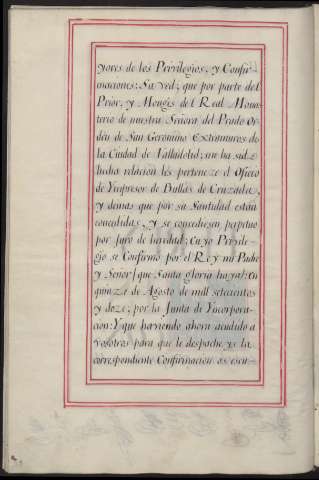 yores de los Privilegios, y Confir-
maciones: Saved; que por parte del
Prior, y Mongis del Real Monas
terio de nuestra Señora del Prado Or
dén de San Geronimo Extramuros de
la Ciudad de Valladolid; me ha sido
hecha relacion lés perteneze el Oficio
de Ympresor de Bullas de Cruzadas,
y demas que por su Santidad están
concedidas, y se concediesen perpetuo
por juro de heredad; Cuyo Privile-
gio se Confirmó por el Rey mi Padre
y Señor (que Santa gloria haya) en
quinze de Agosto de mill setecientos
y doze, por la Junta de Yncorpora-
cion: Y que haviendo ahora acudido a
vosotros para que le despacheys la
correspondiente Confirmacion os escu-